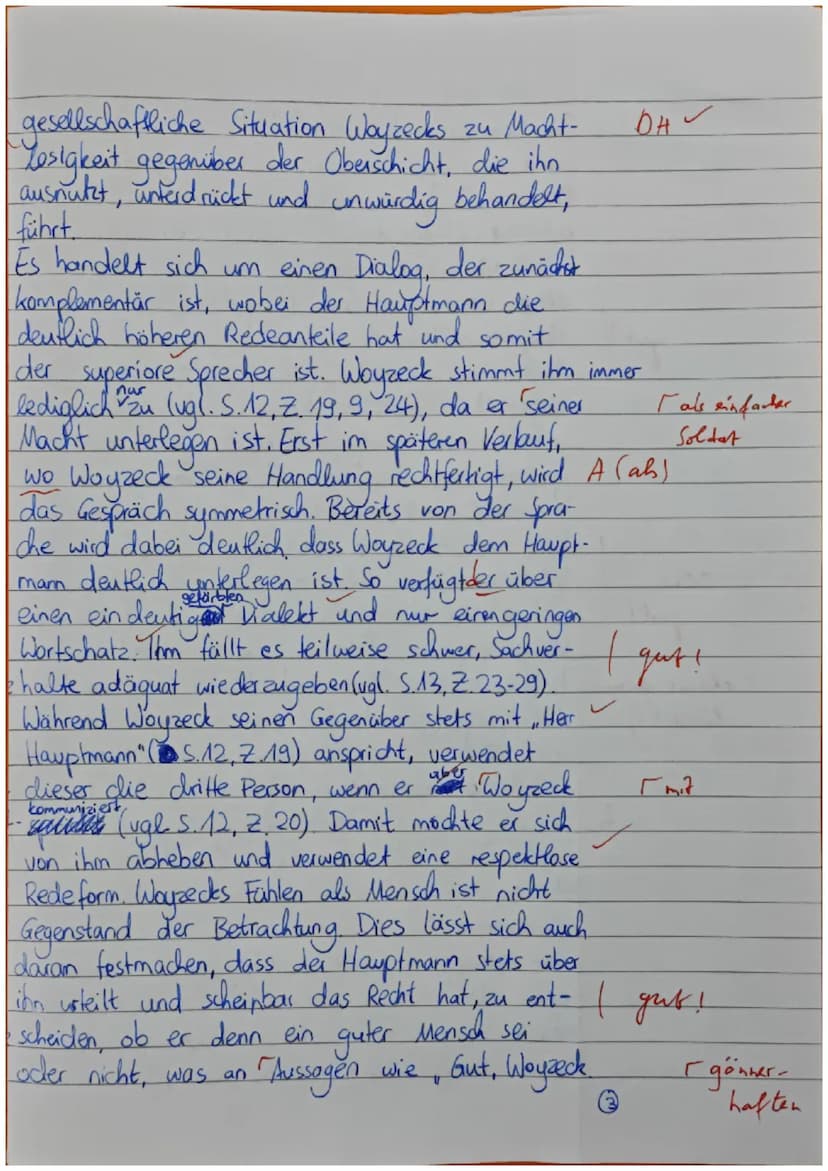 gesellschaftliche Situation Woyzecks zu Macht- DH ✓
losigkeit gegenüber der Oberschicht, die ihn
ausnutzt, unterdrückt und unwürdig behandelt,
führt.
Es handelt sich um einen Dialog, der zunächst
komplementär ist, wobei der Hauptmann die
deutlich höheren Redeanteile hat und somit
der superiore Sprecher ist. Woyzeck stimmt ihm immer
nur
lediglich zu (vgl. S.12, Z. 19, 9, 24), da er seiner ┌ als einfacher
Macht unterlegen ist. Erst im späteren Verlauf, Soldat
wo Woyzeck seine Handlung rechtfertigt, wird A (als)
das Gespräch symmetrisch. Bereits von der Spra-
che wird dabei deutlich, dass Woyzeck dem Haupt-
mann deutlich unterlegen ist. So verfügt er über
gefärbten
einen eindeutig Dialekt und nur einen geringen
Wortschatz. Ihm fällt es teilweise schwer, Sachver- | gut!
halte adäquat wiederzugeben (vgl. S.13, Z.23-29).
Während Woyzeck seinen Gegenüber stets mit „Herr ✓
Hauptmann" (S.12, Z.19) anspricht, verwendet
aber
dieser die dritte Person, wenn er Woyzeck ┌ mit
kommuniziert
(vgl. S.12, Z.20). Damit möchte er sich
von ihm abheben und verwendet eine respektlose ✓
Redeform. Woyzecks Fühlen als Mensch ist nicht
Gegenstand der Betrachtung. Dies lässt sich auch
daran festmachen, dass der Hauptmann stets über
ihn urteilt und scheinbar das Recht hat, zu ent- | gut!
scheiden, ob er denn ein guter Mensch sei
oder nicht, was an Aussagen wie „Gut, Woyzeck ┌ gönner-
haften
③